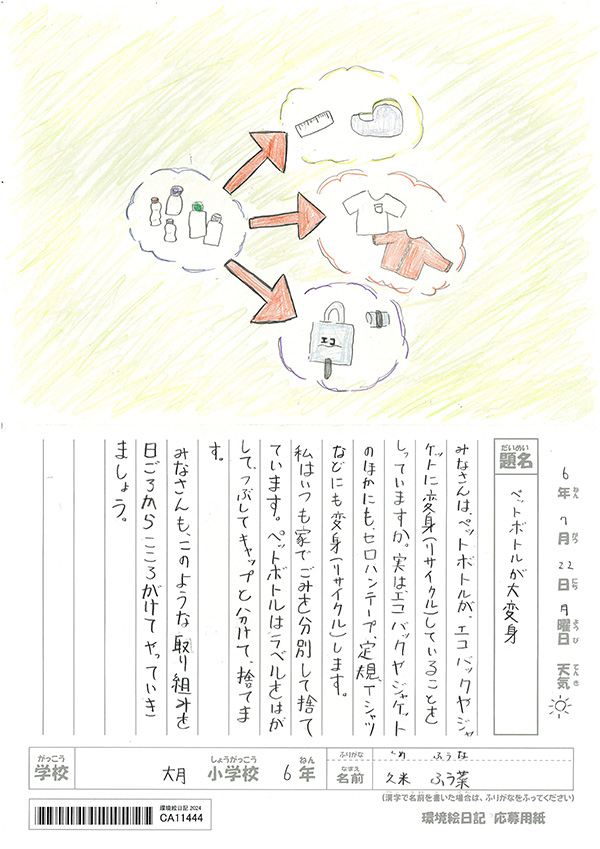 エコ
6年 7月 22日 月曜日 天気
ねん がつ にち ようび てんき
だいめい
題名 ペットボトルが大変身
みなさんは、ペットボトルが、エコバックやジャ
ケットに変身(リサイクル)していることを
しっていますか。実は、エコバックやジャケット
のほかにも、セロハンテープ、定規、Tシャツ
などにも変身(リサイクル)します。
私はいつも家でごみを分別して捨て
ています。ペットボトルはラベルをはが
して、つぶしてキャップと分けて、捨てま
す。
みなさんも、このような取り組みを
日ごろからこころがけてやっていき
ましょう。
がっこう しょうがっこう ねん
学校 大月 小学校 6年
ふりがな くめ ふうな
なまえ
名前 久米 ふう菜
(漢字で名前を書いた場合は、ふりがなをふってください)
環境絵日記 2024
CA11444
環境絵日記 応募用紙